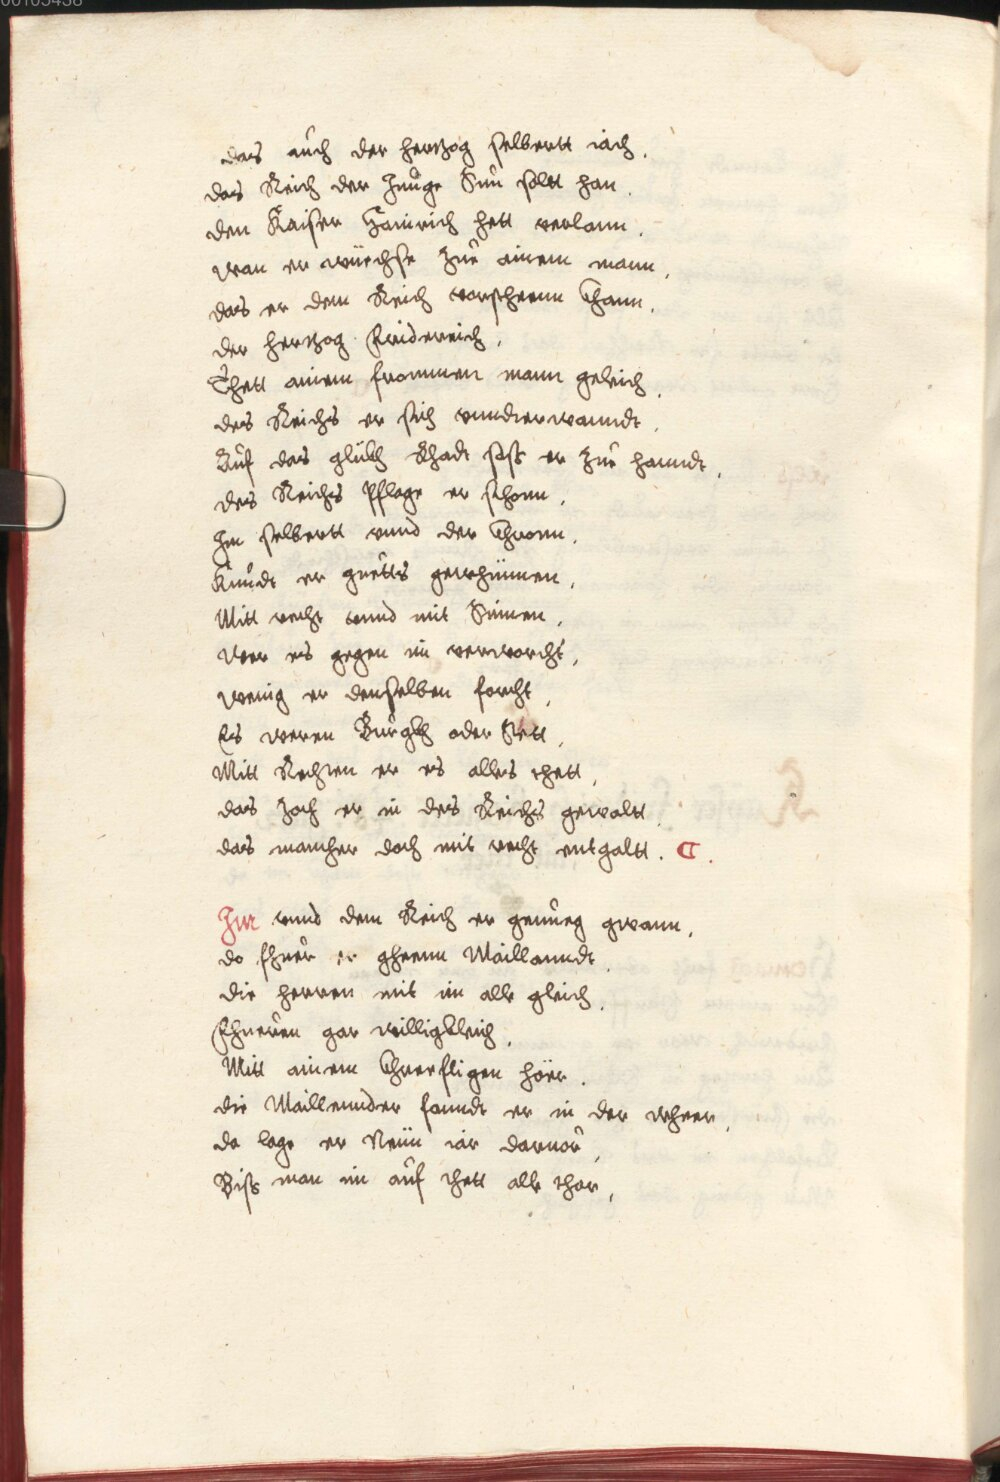 00105458
das auch der hertzog selbertt iach.
das Reich der Junge Sun soltt han.
den Kaiser Hainrich hett verlann.
wan er wüechse zue ainem mann,
das er dem Reich vorstheenn Chann.
der hertzog Friderreich,
Thett ainem frommen mann geleich,
des Reichs er sich vnnderwanndt,
Auf das glückh Rhadt sass er zue hanndt,
des Reichs Pflage er schonn,
Im selbertt vnnd der Chronn,
Kundt er guetts gewhinnen,
Mitt recht vnnd mit Sinnen,
wer es gegen im verworcht,
wenig er denselben forcht,
Es weren Burgkh oder Stett,
Mitt Rechten er es alles thett,
das zoch er in des Reichs gewaltt,
das mancher doch mit recht entgaltt.
Im vnnd dem Reich er genueg gwann,
do fhuer er gheenn Maillanndt,
die herren mit im alle gleich,
Fhueren gar willigkleich,
Mitt ainem Chrefftigen höer.
die Maillennder fanndt er in der wheer,
da lage er Neün iar darvor,
Biss man im auf thett alle thor,